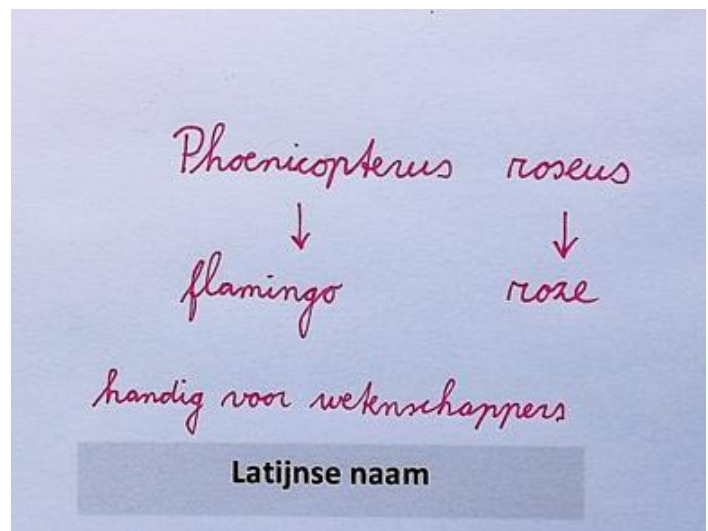 Phoenicopterus roseus
↓ ↓
flamingo roze
handig voor wetenschappers
Latijnse naam